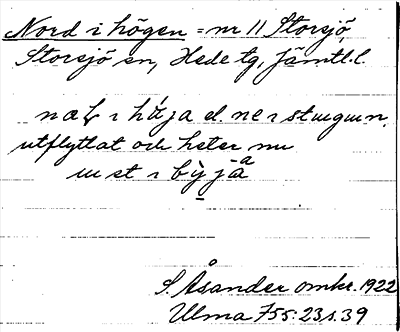 Nord i högen = nr 11 Storsjö,
Storsjö sn, Hede tg, Jämtl. l.
i hǻja el. ne i stuguın,
utflyttat och heter nu
ust ı bỳja
S. Åsander omkr. 1922
Ulma 755: 23 s. 39